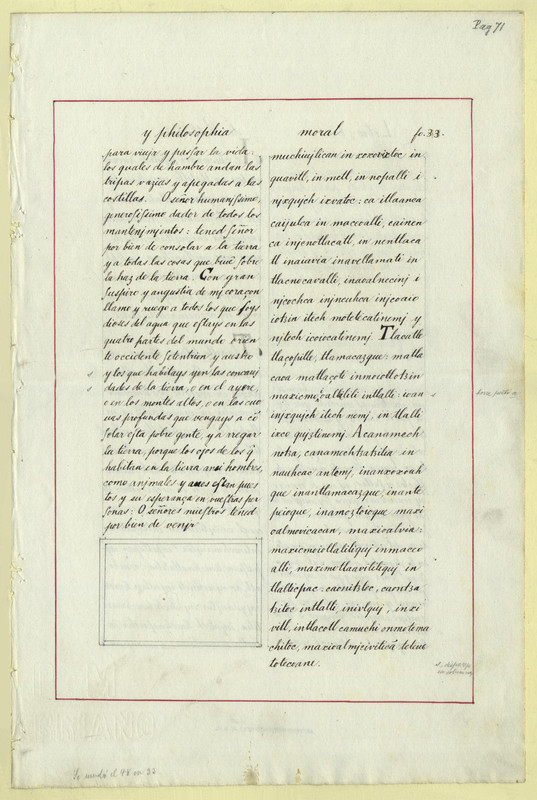 Pag 71
y philosophia moral fo. 33.
para viujr y passar la vida:
los quales de hambre andan las
tripas vazias y apegadas a las
costillas. O señor humanissimo,
generosissimo dador de todos los
mantenjmjentos: tened señor
por bien de consolar a la tierra
y a todas las cosas que biuē sobre
la haz de la tierra. Con gran
suspiro y angustia de mj coraçon
llamo y ruego a todos los que soys
dioses del agua que estays en las
quatro partes del mundo orien
te occidente setentrion y austro
y los que habitays
dades de la tierra, o en el ayre,
o en los montes altos, o en las cue
uas profundas que vengays a cō
solar esta pobre gente, y a rregar
la tierra, porque los ojos de los q̄
habitan en la tierra ansi hombres,
como anjmales y aues estan pues
tos y su esperança en vuestras per
sonas: O señores nuestros tened
por bien de venjr
muchiujlican in xoxovixtoc in
quavitl, in metl, in nopalli i
njxqujch ixvatoc: ca itlaanca
caijulca in maceoalli, cainen
ca injenotlacatl, in nentlaca
tl inaiavia inavellamati in
tlacnecavalli, inacalnecinj i
njcochca injneuhca injcoaio
iotzin itech motetecatinemj y
njtech icoiocatinemj. Tlacatle
tlacopille, tlamacazque: matla
caoa matlaçoti inmoiollotzin
maxicmo,caltitili intlalli: ioan
injxqujch itech nemj, in tlalli
ixco qujztinemj. Acanamech
notza, canamechtzatzilia in
nauhcac antomj, inanxoxouh
que inantlamacazque, inante
peioque, inamoztoque maxi
oalmovicacan, maxioalvia:
maxicmoiollalilliquj inmaceo
alli, maximotlaavililiquj in
tlalticpac: caonitztoc, caontza
tzitoc intlalli, inivlquj, inxi
vitl, intlacotl camuchi onmotema
chitoc, maxioalmjcivitică teteue
totecoane.